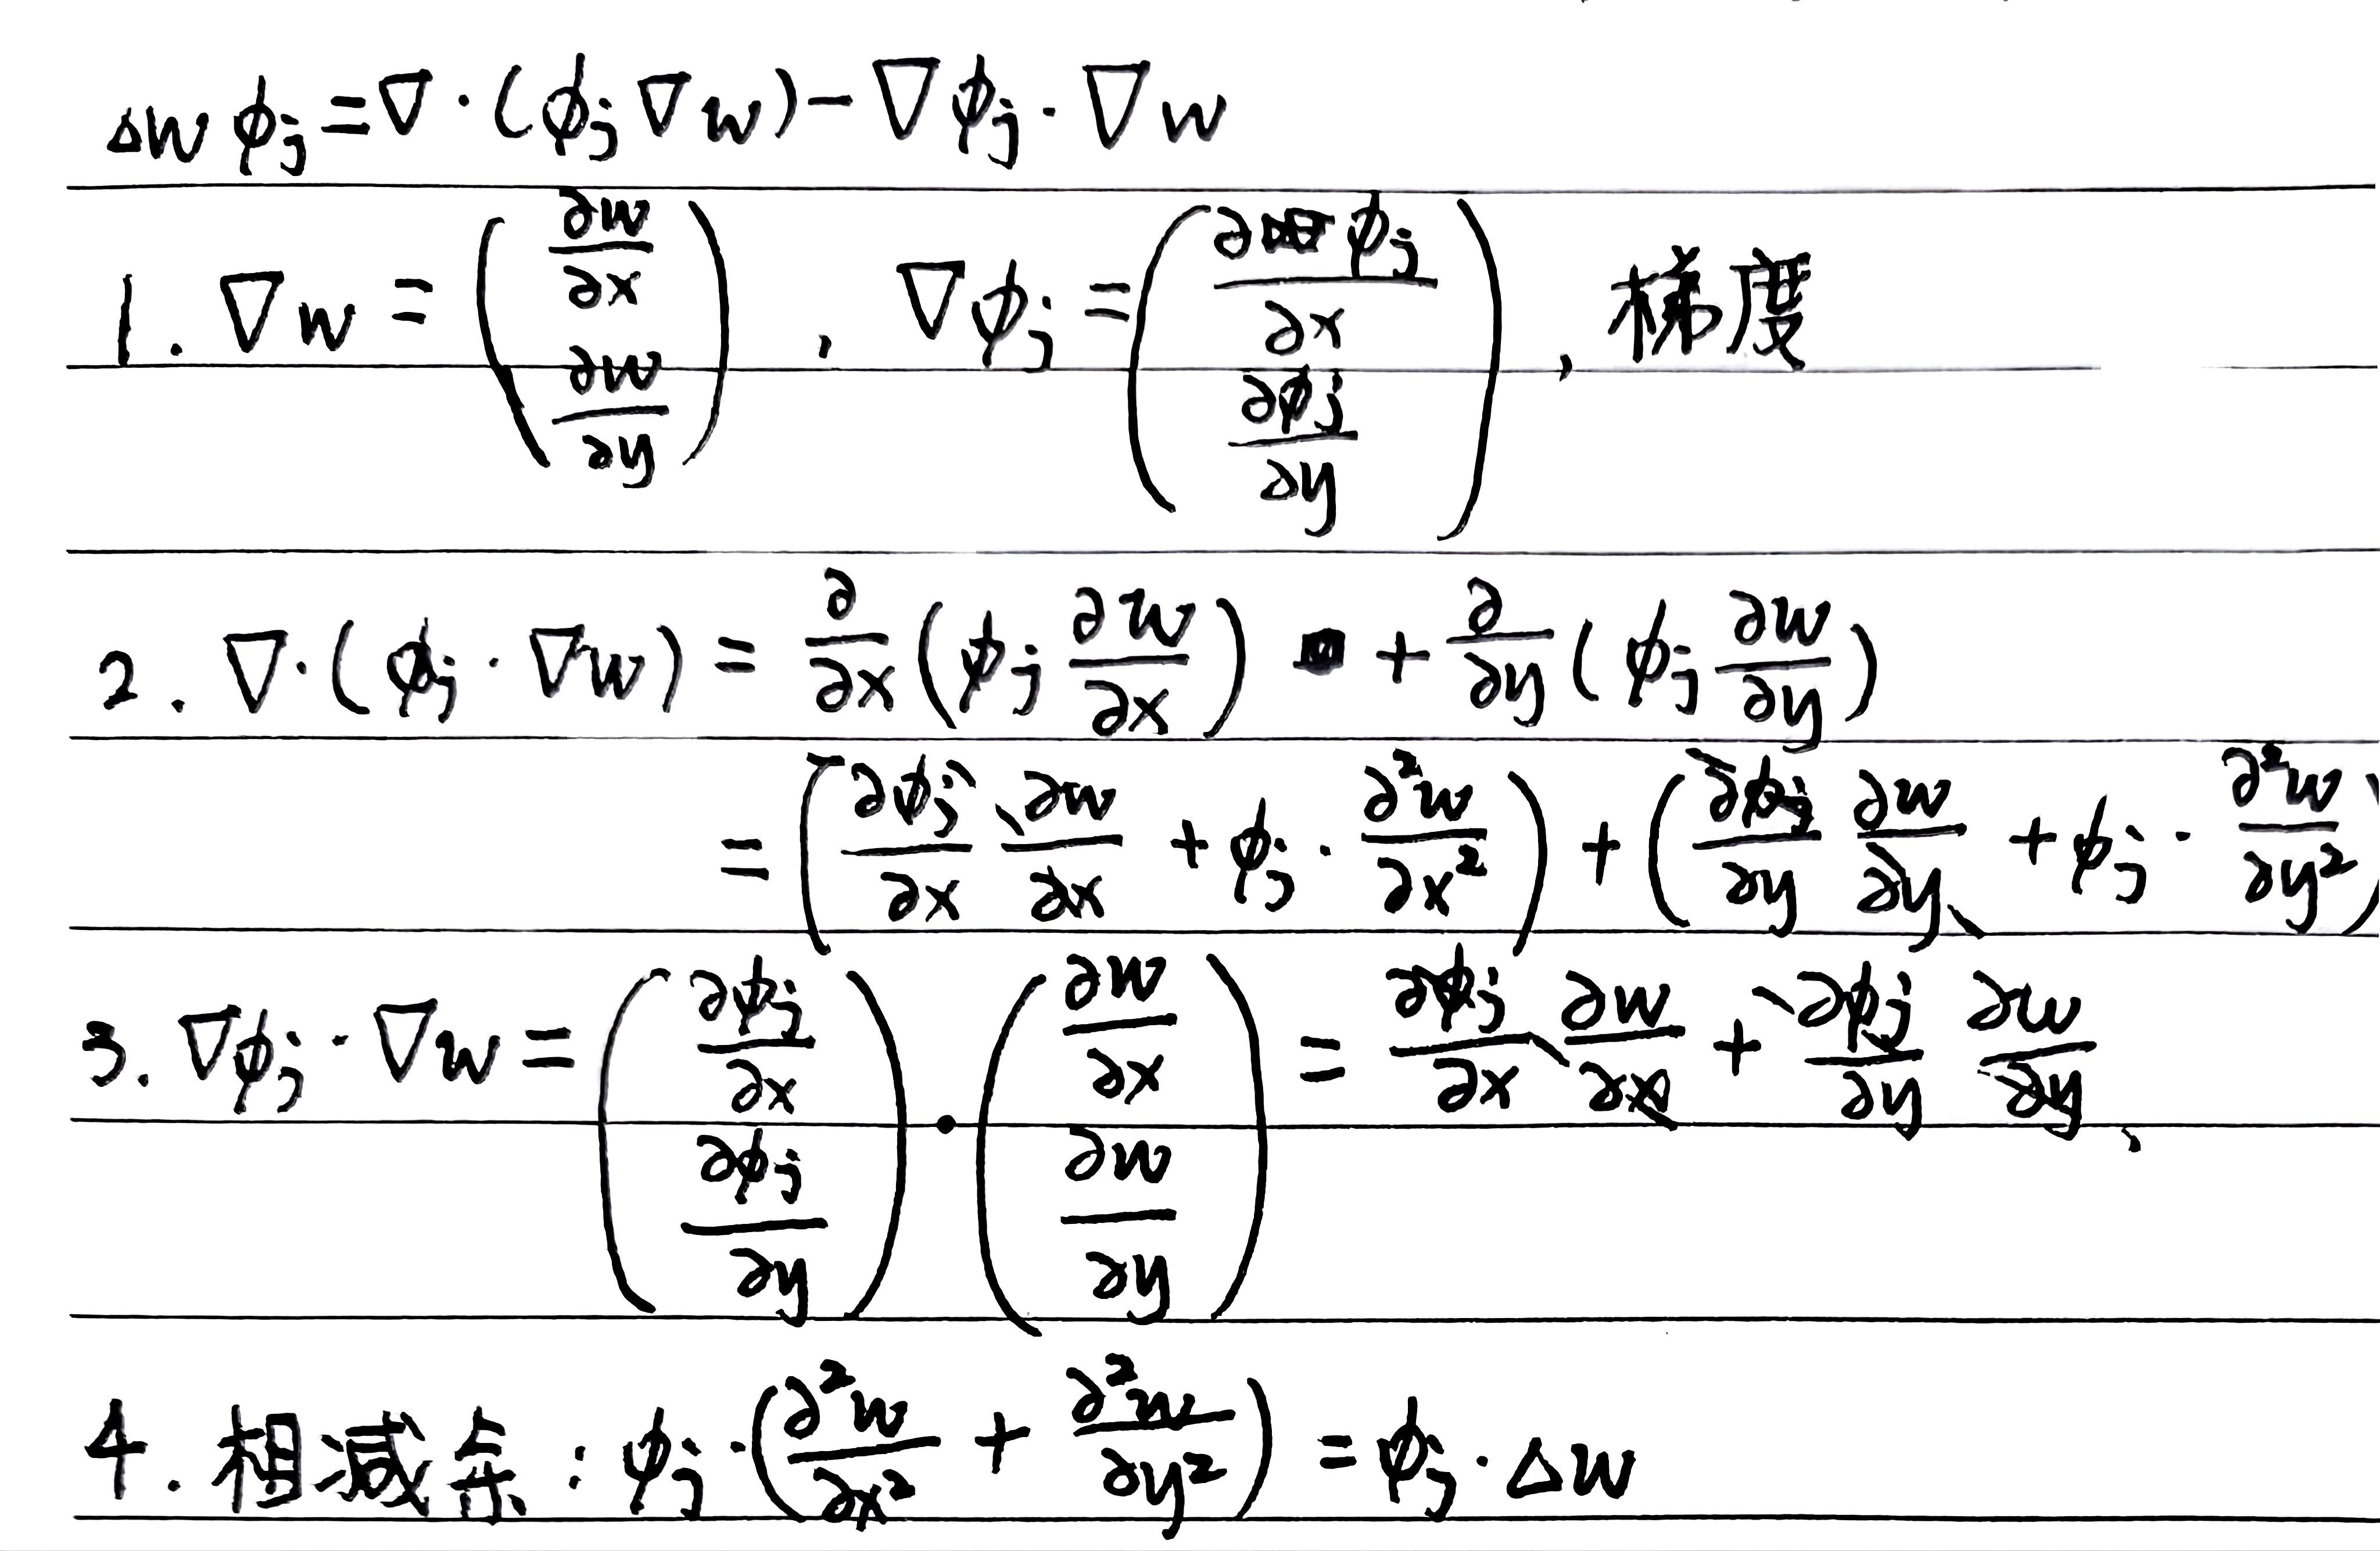 Δw φj = ∇·(φj ∇w) − ∇φj · ∇w
1. ∇w = (∂w/∂x, ∂w/∂y), ∇φj = (∂φj/∂x, ∂φj/∂y), 梯度
2. ∇·(φj · ∇w) = ∂/∂x (φj ∂w/∂x) + ∂/∂y (φj ∂w/∂y)
= (∂φj/∂x ∂w/∂x + φj · ∂²w/∂x²) + (∂φj/∂y ∂w/∂y + φj · ∂²w/∂y²)
3. ∇φj · ∇w = (∂φj/∂x, ∂φj/∂y) · (∂w/∂x, ∂w/∂y) = ∂φj/∂x ∂w/∂x + ∂φj/∂y ∂w/∂y
4. 相减余: φj · (∂²w/∂x² + ∂²w/∂y²) = φj · Δw